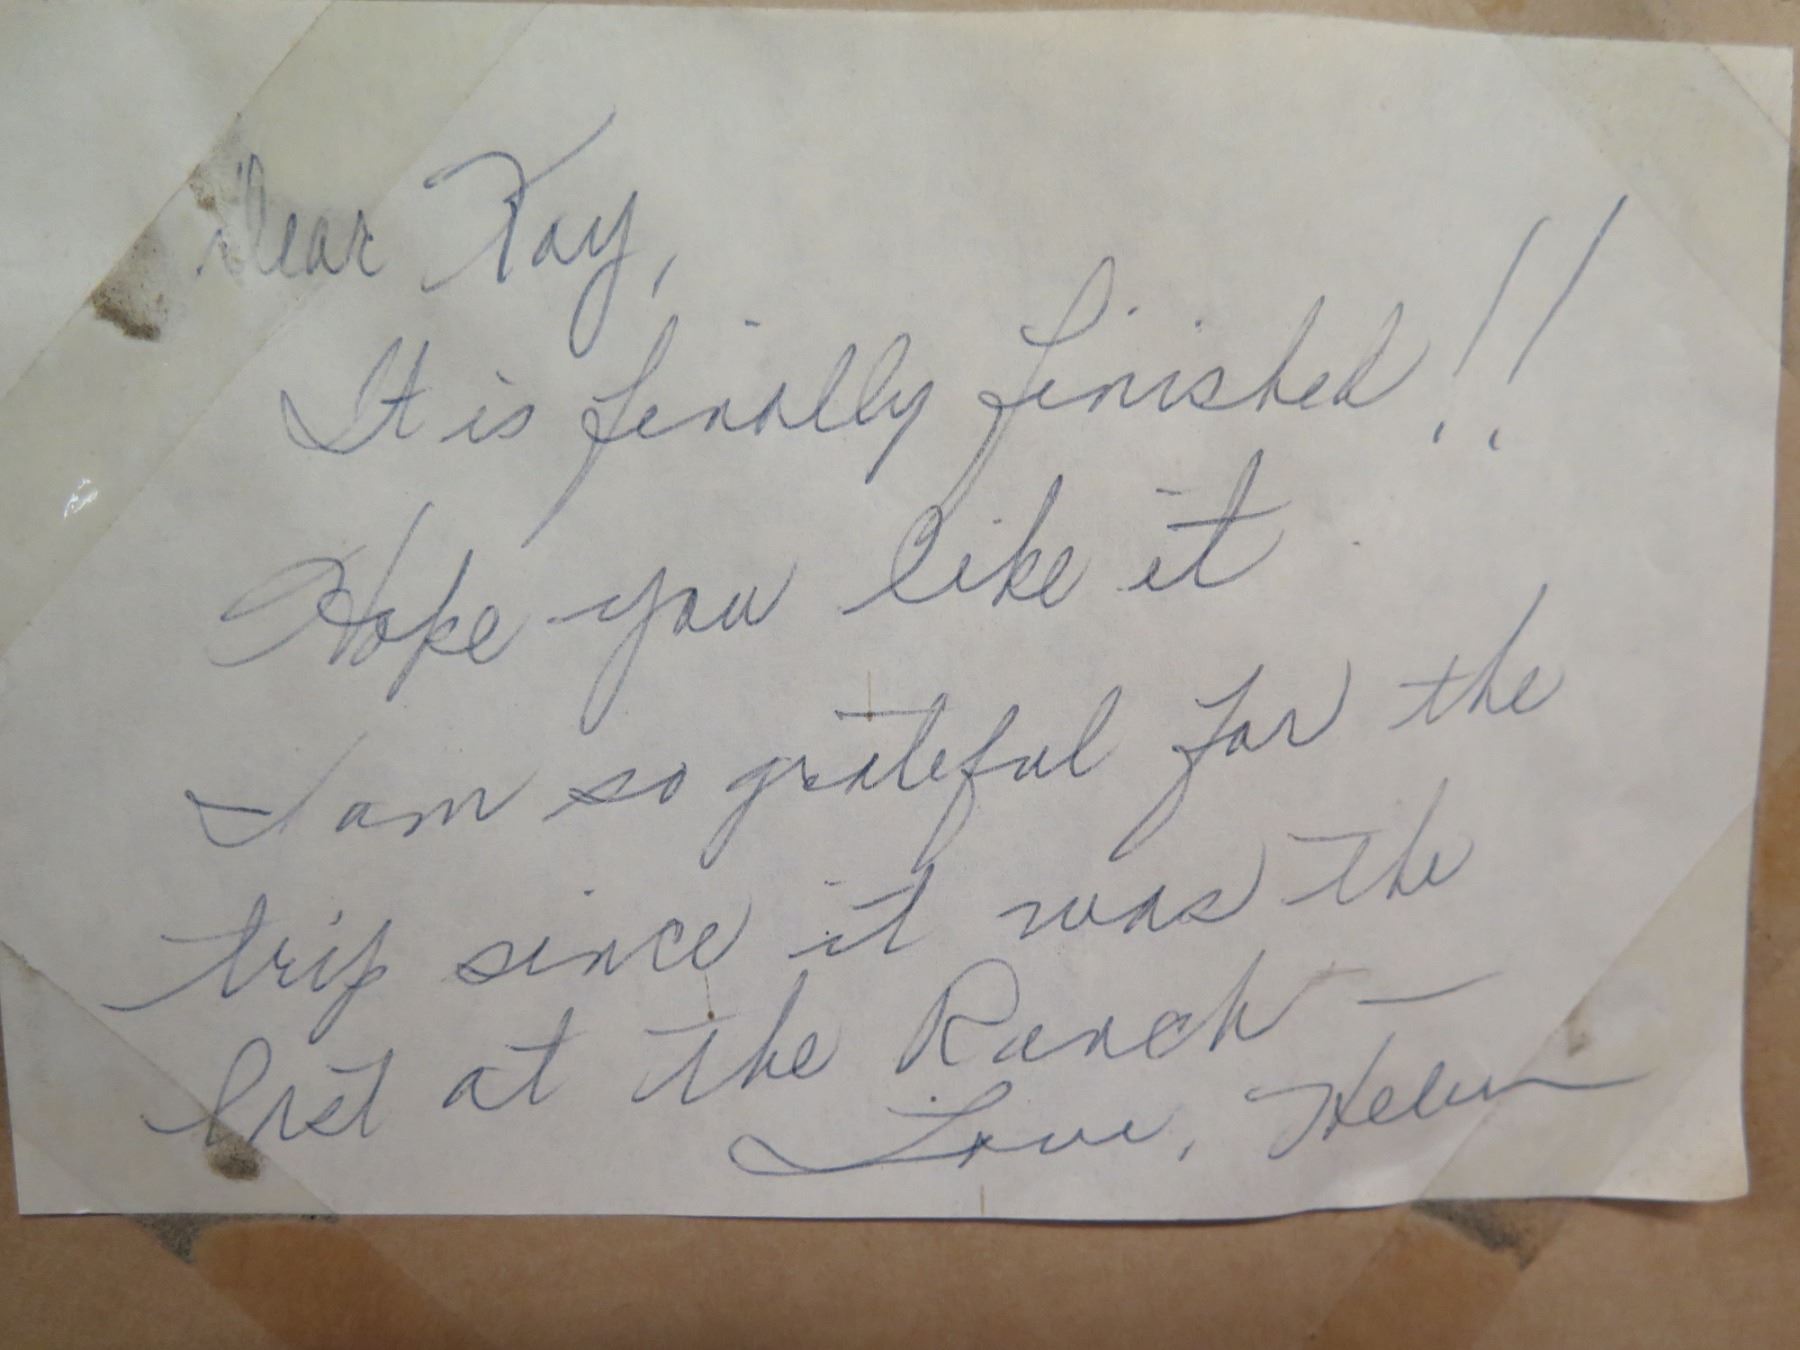 Dear Kay,
It is finally finished!!
Hope you like it
I am so grateful for the
trip since it was the
last at the Ranch —
Love, Helen